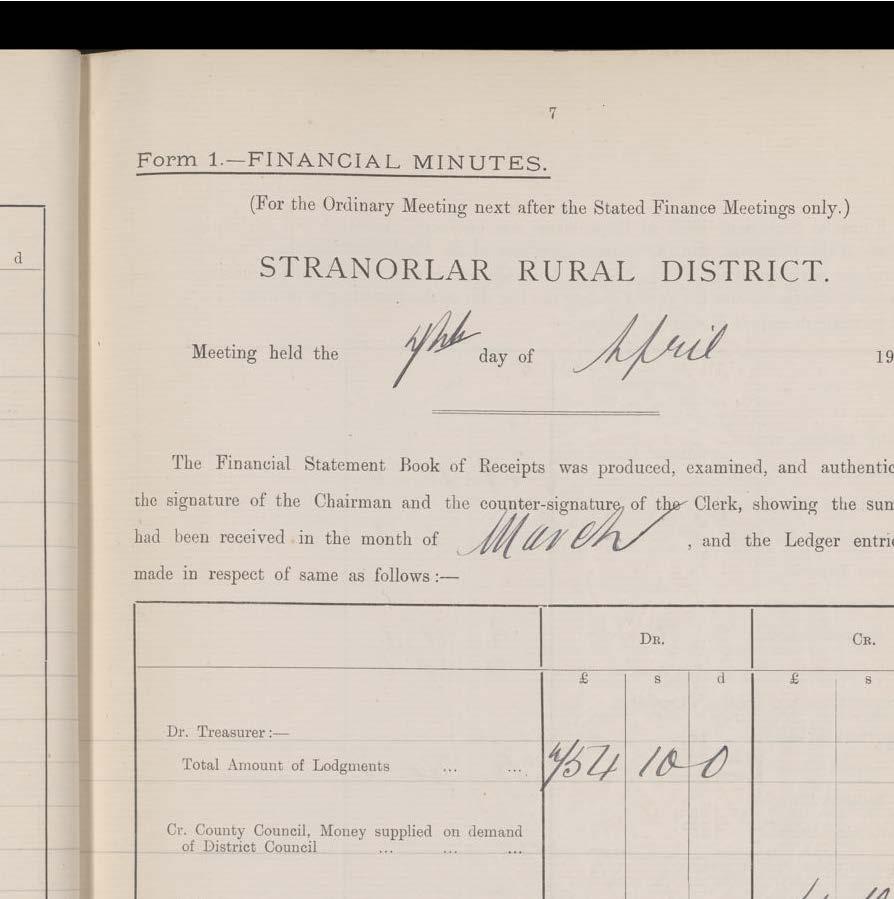 7
Form 1.—FINANCIAL MINUTES.
(For the Ordinary Meeting next after the Stated Finance Meetings only.)
d
STRANORLAR RURAL DISTRICT.
Meeting held the day of April 19
The Financial Statement Book of Receipts was produced, examined, and authentic
the signature of the Chairman and the counter-signature, of the Clerk, showing the sum
had been received in the month of March, and the Ledger entrie
made in respect of same as follows:—
DR. CR.
£ s d £ s
Dr. Treasurer:—
Total Amount of Lodgments ... ... 10 0
Cr. County Council, Money supplied on demand
of District Council ... ... ...